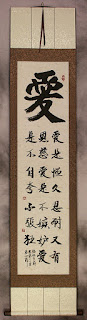 愛
愛是恒久忍耐又有
恩慈愛是不嫉妒愛
是不自夸不張狂